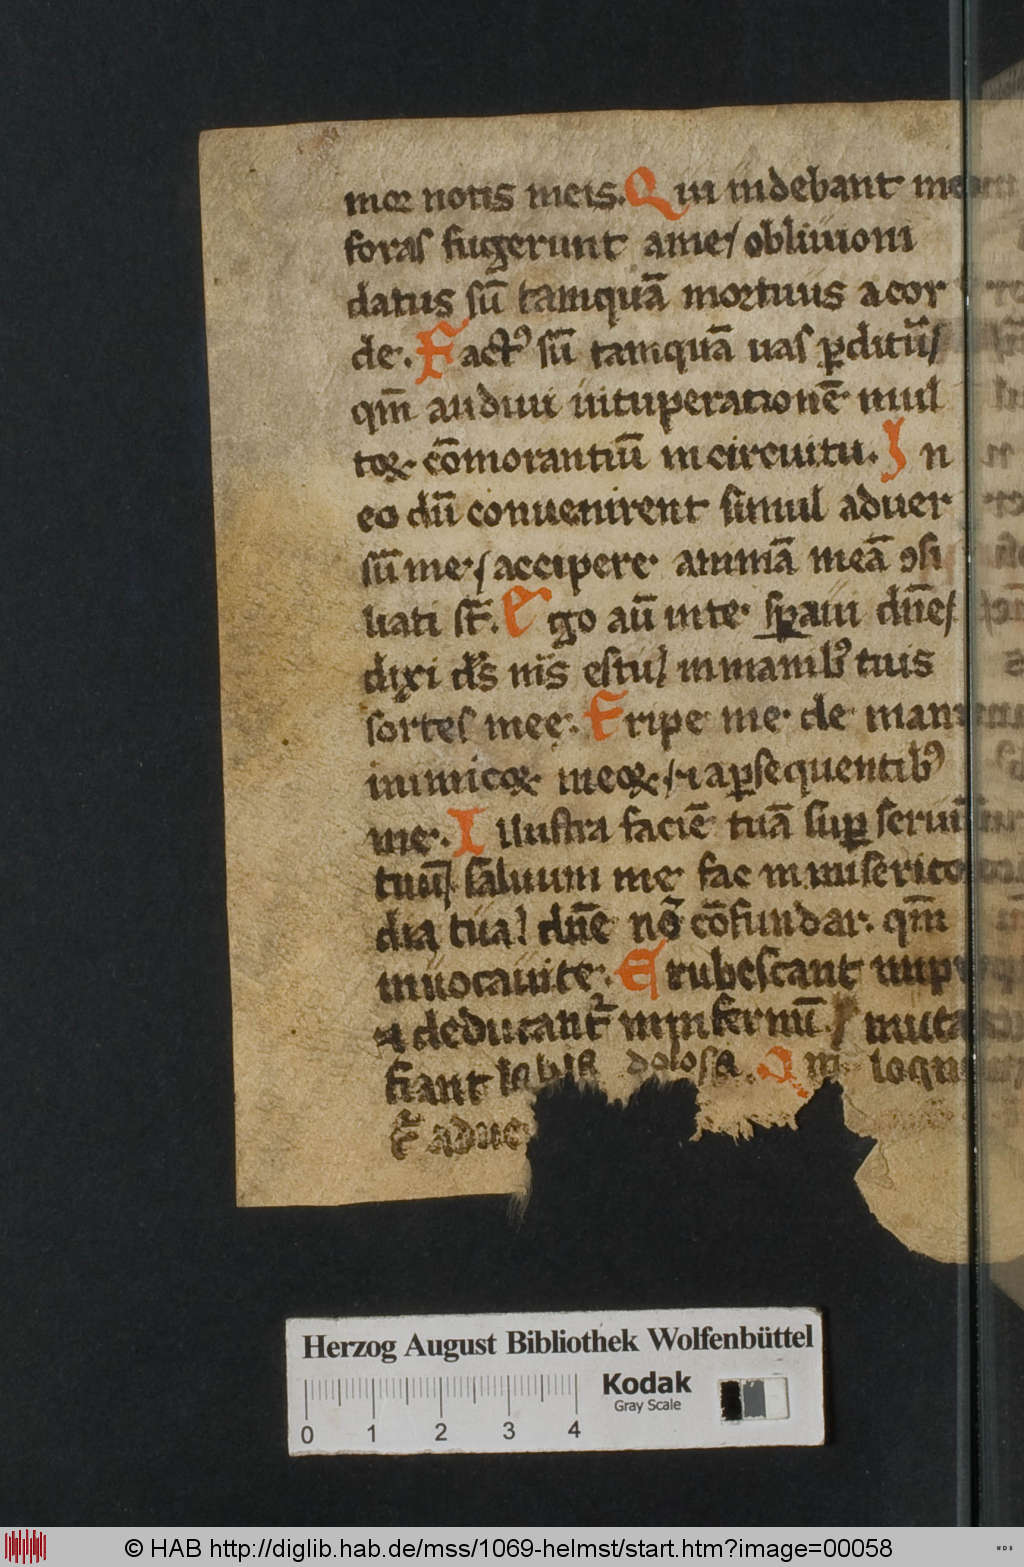 moꝝ notis meis. Qui uidebant me
foras fugerunt ame/ obliuioni
datus sū tamquā mortuus acor
de. Factꝰ sū tamquā uas ꝑditū/
qm̄ audiui uituperationē mul
toꝝ cōmorantiū incircuitu. In
eo dū conuenirent simul aduer
sū me/ accipere animā meā ɔsi
liati st̄. Ego aū inte speraui dn̄e/
dixi ds̄ ms̄ estu/ inmanibꝰ tuis
sortes meę. Eripe me de manu
inimicoꝝ meoꝝ/ ⁊ aꝑsequentibꝰ
me. Ilustra faciē tuā suꝑ seruū
tuū/ saluum me fac in miserico
dia tua/ dn̄e nō cōfundar qm̄
inuocauite. Erubescant impi
⁊ deducant᷑ ininfernū/ muta
fiant labia dolosa. Qui loqu
t᷑ adue
Herzog August Bibliothek Wolfenbüttel
Kodak
Gray Scale
0 1 2 3 4
© HAB http://diglib.hab.de/mss/1069-helmst/start.htm?image=00058